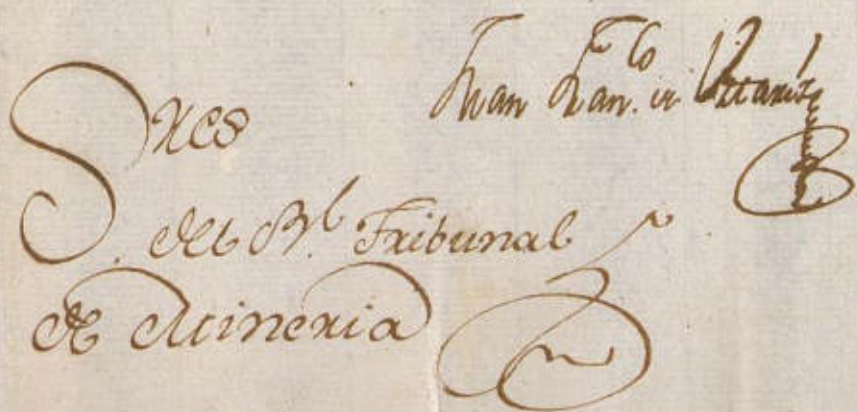 Juan Fran.co
Sres
del Rl. Tribunal
de Mineria